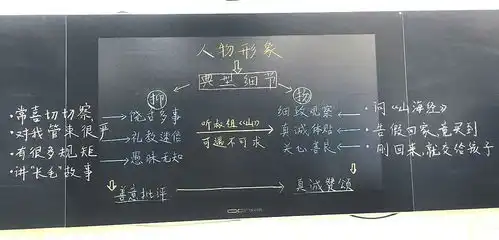 人物形象
典型细节
抑
扬
·常喜切切察
饶舌多事
细致观察
问《山海经》
·对我管束很严
礼教迷信
听叔祖《山》
真诚体贴
告假回家,竟买到
·有很多规矩
愚昧无知
可遇不可求
关心善良
刚回来,就交给孩子
·讲"长毛"故事
善意批评
真诚赞颂